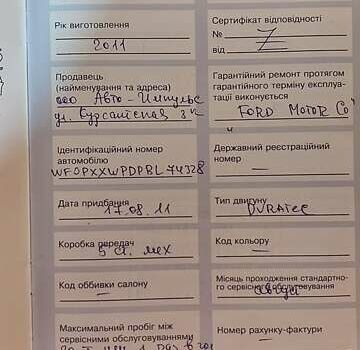 Рік виготовлення
2011
Сертифікат відповідності
№
від
Продавець
(найменування та адреса)
ооо Авто-Импульс
ул. Курсантская
Гарантійний ремонт протягом
гарантійного терміну експлуа-
тації виконується
FORD MOTOR Co
Ідентифікаційний номер
автомобілю
WF0PXXWPDPBL74328
Державний реєстраційний
номер —
Дата придбання
17.08.11
Тип двигуну
DURATEC
Коробка передач
5 ст. мех
Код кольору
—
Код оббивки салону
—
Місяць проходження стандартно-
го сервісного обслуговування
Максимальний пробіг між
сервісними обслуговуваннями
Номер рахунку-фактури
—